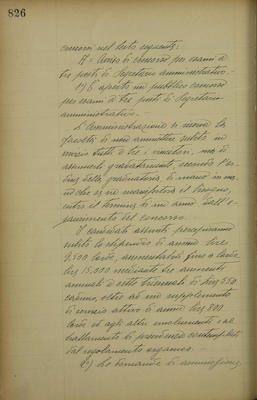 826
concorsi nel testo seguente:
A = Avviso di concorso per esami a
tre posti di Segretario amministrativo. -
1) È aperto un pubblico concorso
per esami a tre posti di Segretario
amministrativo. -
L'Amministrazione si riserva la
facoltà di non ammettere subito in
servizio tutti e tre i vincitori, ma di
assumerli gradatamente secondo l'or
dine della graduatoria, di mano in ma
no che se ne manifesterà il bisogno,
entro il termine di un anno dall'e
spletamento del concorso.
I candidati assunti percepiranno
subito lo stipendio di annue lire
9.500 lorde, aumentabili fino a lorde
lire 15.000 mediante tre aumenti
annuali e sette triennali di lire 550
caduno, oltre ad un supplemento
di servizio attivo di annue lire
lorde ed agli altri emolumenti e al
trattamento di previdenza contemplati
dal regolamento organico. -
2) Le domande di ammissione,